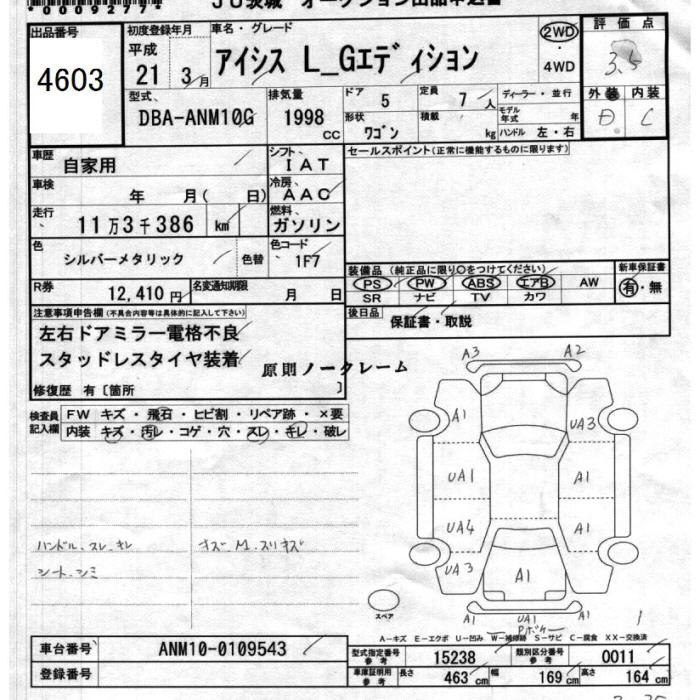 *0009277*
JU茨城 オークション出品申込書
出品番号
4603
初度登録年月
平成
21 3月
車名・グレード
アイシス L_Gエディション
2WD
・
4WD
評価点
3.5
外装 内装
D C
型式
DBA-ANM10G
排気量
1998
CC
ドア 5 定員 7人
形状 ワゴン 積載 kg
ディーラー・並行
モデル年式 年
ハンドル 左・右
車歴 自家用
シフト
IAT
車検 年 月( 日)
冷房
AAC
走行 11万3千386 km
燃料
ガソリン
色 シルバーメタリック 色替
色コード
1F7
R券 12,410円 名変通知期限 月 日
セールスポイント(正常に機能するものに限ります)
装備品(純正品に限り○をつけてください)
PS PW ABS エアB AW
SR ナビ TV カワ
新車保証書
有・無
後日品 保証書・取説
注意事項申告欄(不具合内容等は具体的に記入して下さい)
左右ドアミラー電格不良
スタッドレスタイヤ装着
原則ノークレーム
修復歴 有〔箇所 〕
検査員記入欄
FW キズ・飛石・ヒビ割・リペア跡・×要
内装 キズ・汚レ・コゲ・穴・スレ・キレ・破レ
ハンドル.スレ.キレ
シート.シミ
キズ M.スリキズ
A3 A2
A1 UA3
UA1 A1
UA4 A1
UA3
A1
A1 UA1 1
Pボケー
スペア
A-キズ E-エクボ U-凹み W-補修跡 S-サビ C-腐食 XX-交換済
車台番号 ANM10-0109543
登録番号
型式指定番号 参考 15238 類別区分番号 参考 0011
車庫証明用 参考 長さ 463cm 幅 169cm 高さ 164cm